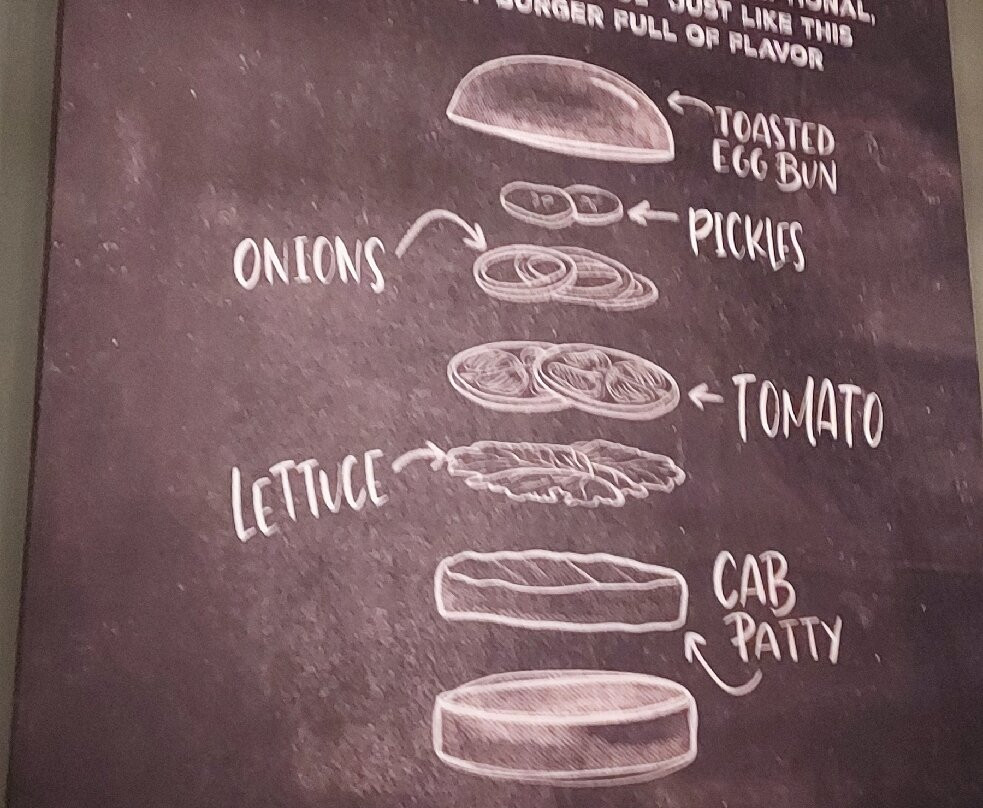 JUST LIKE THIS
BURGER FULL OF FLAVOR
TOASTED
EGG BUN
PICKLES
ONIONS
TOMATO
LETTUCE
CAB
PATTY